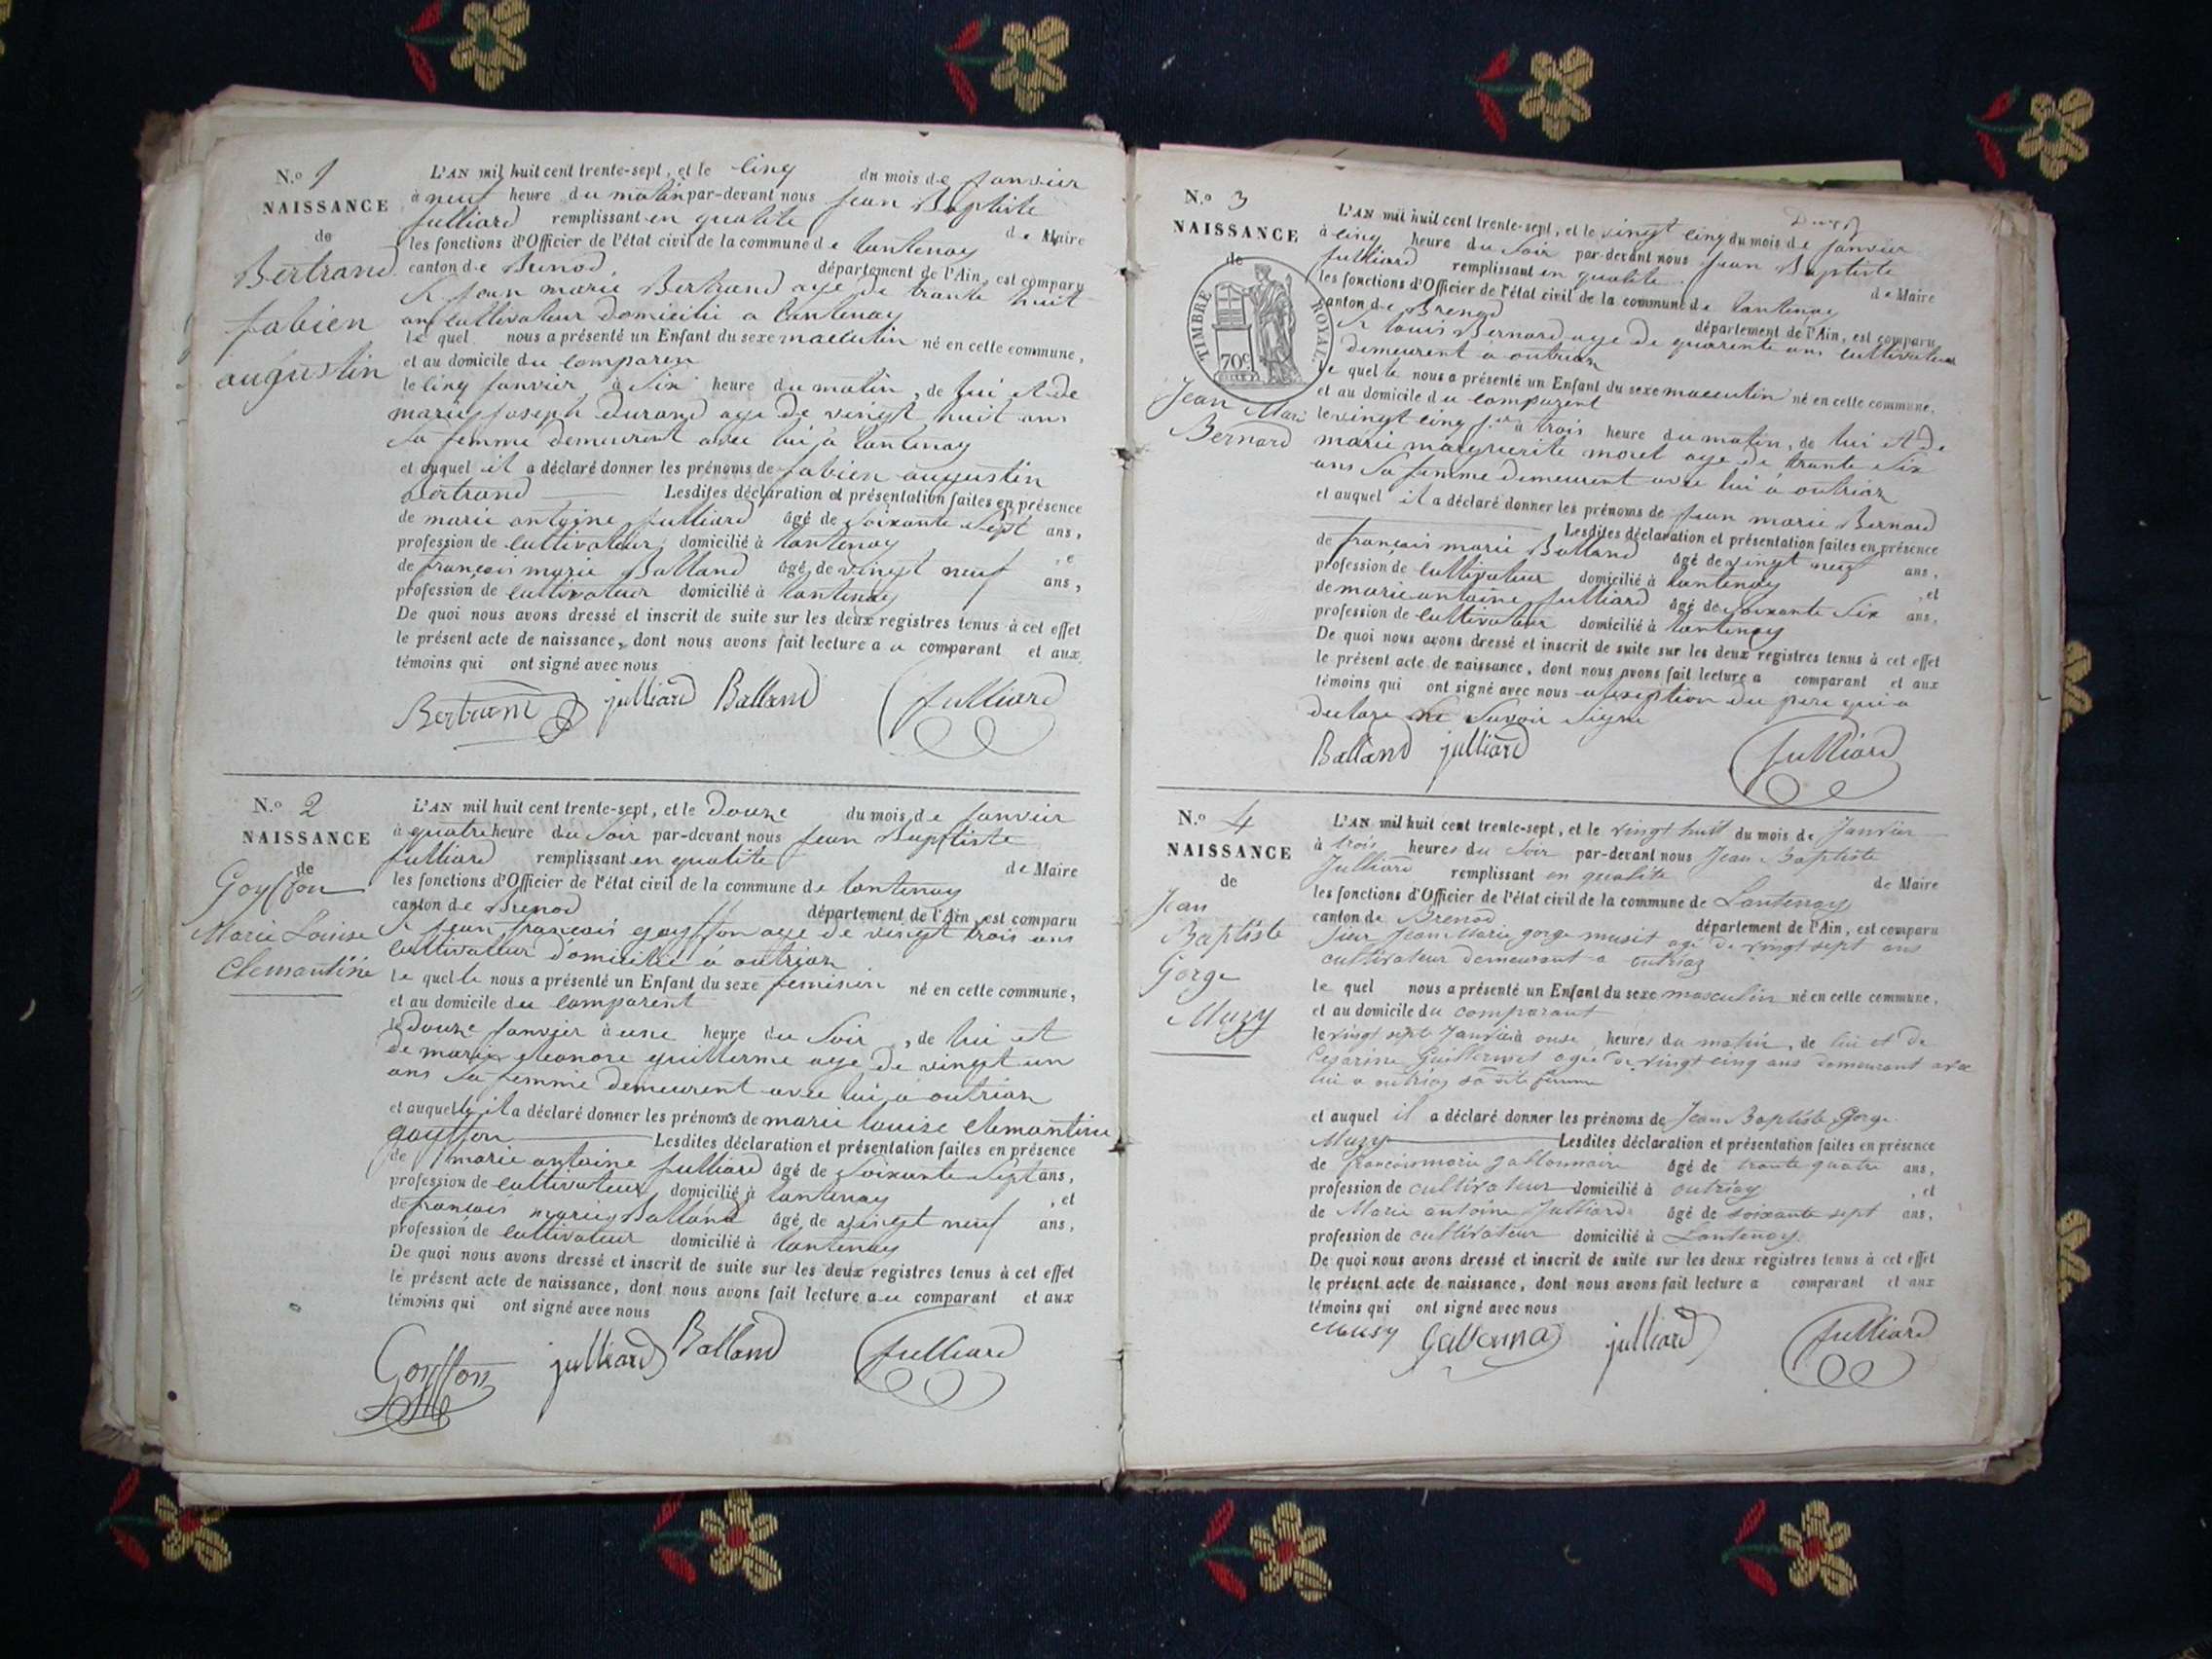 N.º 1
NAISSANCE
de
Bertrand
fabien
augustin
L'AN mil huit cent trente-sept, et le cinq du mois de janvier
à neuf heure du matin par-devant nous jean Baptiste
julliard remplissant en qualité de Maire
les fonctions d'Officier de l'état civil de la commune de lantenay
canton de Brenod, département de l'Ain, est comparu
Sr jean marie Bertrand age de trante huit
ans cultivateur domicilié a lantenay
le quel nous a présenté un Enfant du sexe masculin né en cette commune,
et au domicile du comparen
le cinq janvier à six heure du matin, de lui et de
marie joseph durand age de vingt huit ans
sa femme demeurent avec lui à lantenay
et auquel il a déclaré donner les prénoms de fabien augustin
bertrand Lesdites déclaration et présentation faites en présence
de marie antoine julliard âgé de soixante sept ans,
profession de cultivateur domicilié à lantenay, e
de francois marie Balland âgé de vingt neuf ans,
profession de cultivateur domicilié à lantenay
De quoi nous avons dressé et inscrit de suite sur les deux registres tenus à cet effet
le présent acte de naissance, dont nous avons fait lecture au comparant et aux
témoins qui ont signé avec nous
Bertrand julliard Balland julliard
N.º 2
NAISSANCE
de
Goyffon
Marie Louise
Clemantine
L'AN mil huit cent trente-sept, et le douze du mois de janvier
à quatre heure du soir par-devant nous jean Baptiste
julliard remplissant en qualite de Maire
les fonctions d'Officier de l'état civil de la commune de lantenay
canton de Brenod département de l'Ain, est comparu
Sr jean francois goyffon age de vingt trois ans
cultivateur domicilié à outriaz
le quel le nous a présenté un Enfant du sexe feminin né en cette commune,
et au domicile du comparent
le douze janvier à une heure du soir, de lui et
de marie eleonore guillerme age de vingt un
ans sa femme demeurent avec lui à outriaz
et auquelle il a déclaré donner les prénoms de marie louise clemantine
goyffon Lesdites déclaration et présentation faites en présence
de marie antoine julliard âgé de soixante sept ans,
profession de cultivateur domicilié à lantenay, et
de francois marie Balland âgé de vingt neuf ans,
profession de cultivateur domicilié à lantenay
De quoi nous avons dressé et inscrit de suite sur les deux registres tenus à cet effet
le présent acte de naissance, dont nous avons fait lecture au comparant et aux
témoins qui ont signé avec nous
Goyffon julliard Balland julliard
N.º 3
NAISSANCE
de
TIMBRE ROYAL.
70c
Jean Marie
Bernard
L'AN mil huit cent trente-sept, et le vingt cinq du mois de janvier
à cinq heure du soir par-devant nous jean Baptiste
julliard remplissant en qualite de Maire
les fonctions d'Officier de l'état civil de la commune de lantenay
canton de Brenod département de l'Ain, est comparu
Sr louis Bernard age de quarente ans cultivateur
demeurent à outriaz
le quel le nous a présenté un Enfant du sexe masculin né en cette commune.
et au domicile du comparent
le vingt cinq à trois heure du matin, de lui et de
marie marguerite morel age de trante six
ans sa femme demeurent avec lui à outriaz
et auquel il a déclaré donner les prénoms de jean marie Bernard
Lesdites déclaration et présentation faites en présence
de francois marie Balland âgé de vingt neuf ans,
profession de cultivateur domicilié à lantenay, et
de marie antoine julliard âgé de soixante six ans,
profession de cultivateur domicilié à lantenay
De quoi nous avons dressé et inscrit de suite sur les deux registres tenus à cet effet
le présent acte de naissance, dont nous avons fait lecture a comparant et aux
témoins qui ont signé avec nous a lexeption du pere qui a
declare ne savoir signe
Balland julliard julliard
N.º 4
NAISSANCE
de
Jean
Baptiste
Gorge
Muzy
L'AN mil huit cent trente-sept, et le vingt huit du mois de Janvier
à trois heures du soir par-devant nous Jean Baptiste
Julliard remplissant en qualité de Maire
les fonctions d'Officier de l'état civil de la commune de Lantenay
canton de Brenod département de l'Ain, est comparu
sieur Jean Marie gorge musit agé de vingt sept ans
cultivateur demeurant a outriaz
le quel nous a présenté un Enfant du sexe masculin né en cette commune.
et au domicile du comparant
le vingt sept Janvier à onse heures du matin, de lui et de
Cezarine Guillermet agée de vingt cinq ans demeurant avec
lui a outriaz sa dite femme
et auquel il a déclaré donner les prénoms de Jean Baptiste Gorge
Muzy Lesdites déclaration et présentation faites en présence
de francois marie âgé de trante quatre ans,
profession de cultivateur domicilié à outriaz, et
de Marie antoine Julliard âgé de soixante sept ans,
profession de cultivateur domicilié à Lantenay.
De quoi nous avons dressé et inscrit de suite sur les deux registres tenus à cet effet
le présent acte de naissance, dont nous avons fait lecture a comparant et aux
témoins qui ont signé avec nous
Musy julliard julliard